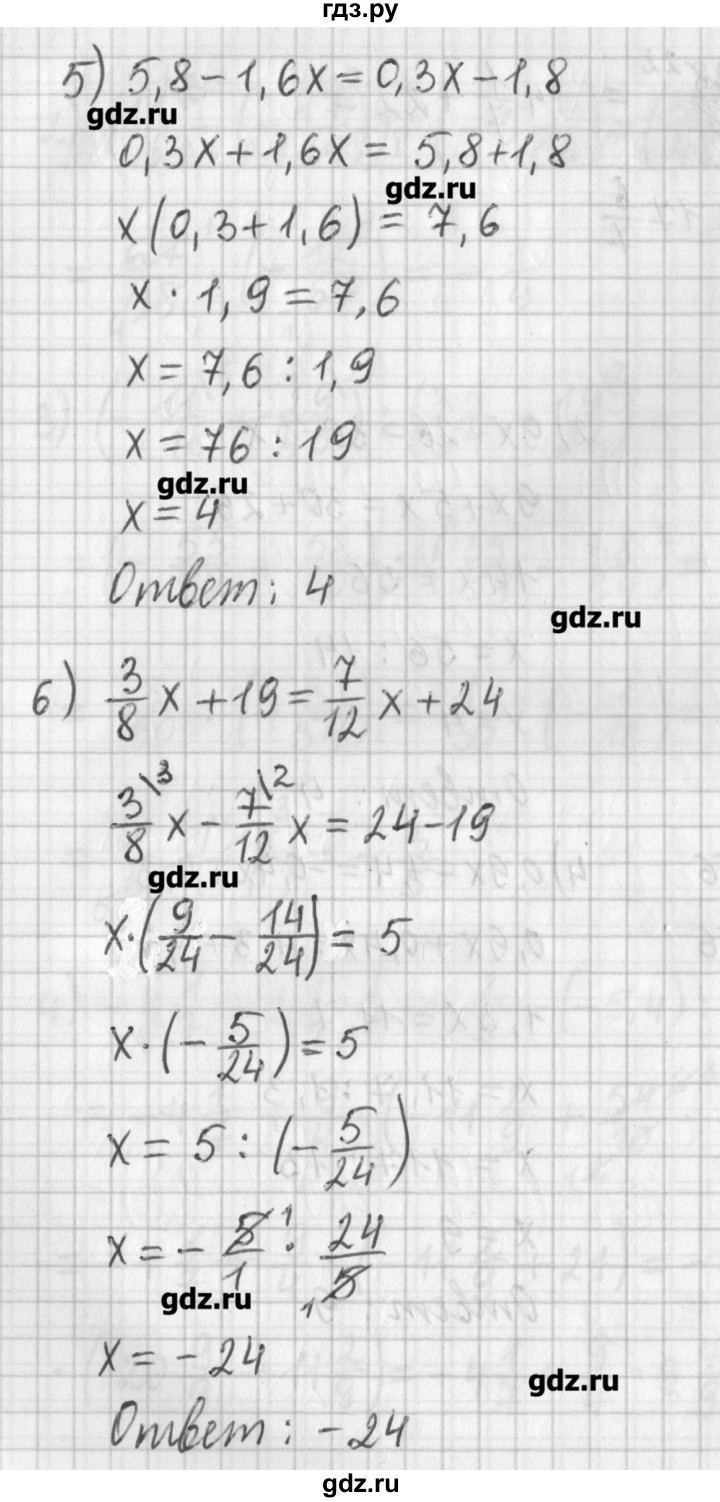 гдз.ру
5) 5,8-1,6x=0,3x-1,8
gdz.ru
0,3x+1,6x= 5,8+1,8
gdz.ru
x(0,3+1,6)= 7,6
x·1,9=7,6
x=7,6:1,9
x=76:19
gdz.ru
x=4
Ответ: 4
gdz.ru
6) 3/8 x+19=7/12 x+24
3/8\3 x-7/12\2 x=24-19
gdz.ru
x·(9/24-14/24)=5
x·(-5/24)=5
x=5:(-5/24)
x=-5/1·24/5
1 1
gdz.ru
x=-24
gdz.ru
Ответ: -24
gdz.ru